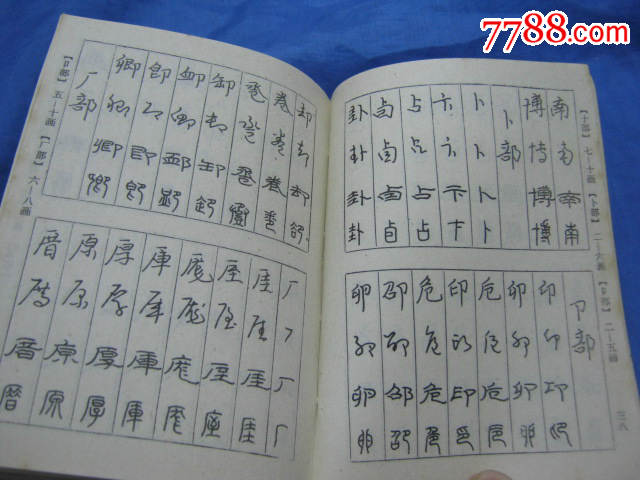 7788.com
【十部】七—十画 【卜部】二—六画 【卩部】二—五画 三八
南南南南
博博博博
卜部
卜卜卜卜
卞卞卞卞
占占占占
卣卣卣卣
卦卦卦卦
卩部
卬卬卬卬
卯卯卯卯
卮卮卮卮
印印印印
危危危危
卲卲卲卲
卵卵卵卵
却却却却
卷卷卷卷
卺卺卺卺
卸卸卸卸
卹卹卹卹
即即即即
卿卿卿卿
厂部
厂厂厂厂
厓厓厓厓
厔厔厔厔
厖厖厖厖
厙厙厙厙
厚厚厚厚
原原原原
厝厝厝厝
【卩部】五—十画 【厂部】六—八画